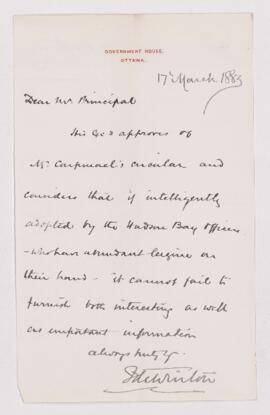 GOVERNMENT HOUSE,
OTTAWA.
17 March 1883
Dear Mr Principal
His Ex approves of
Mr Carpmael's circular and
considers that if intelligently
adopted by the Hudson Bay Officers
- who have abundant leisure on
their hand - it cannot fail to
furnish both interesting as well
as important information
always truly yr
F de Winton